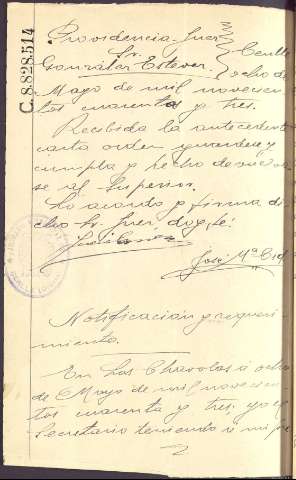 C.8.828.514
Providencia Juez
Sr.
González Estevez. Teulte
ocho de
Mayo de mil novecien
tos cuarenta y tres.
Recibida la antecedente
carta orden guardese y
cumpla y hecho devuelva
se al Superior.
Lo acordó y firma di
cho Sr. Juez doy fé:
José Mª Cid
Notificación y requeri-
miento.
En Las Chavolas a ocho
de Mayo de mil novecien
tos cuarenta y tres, yo el
Secretario teniendo a mi pre